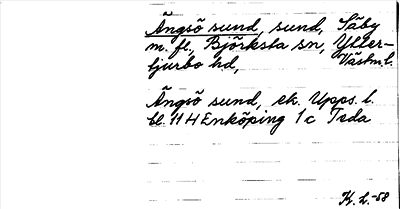 Ängsö sund, sund, Säby
m. fl., Björksta sn, Ytter-
tjurbo hd, Västm.l.
Ängsö sund, ek. Upps. l.
bl. 11 H Enköping 1c Tsda
K. L. -58